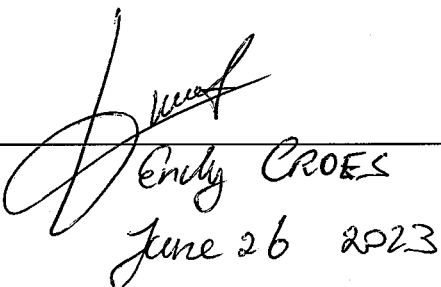 Endy CROES
June 26 2023